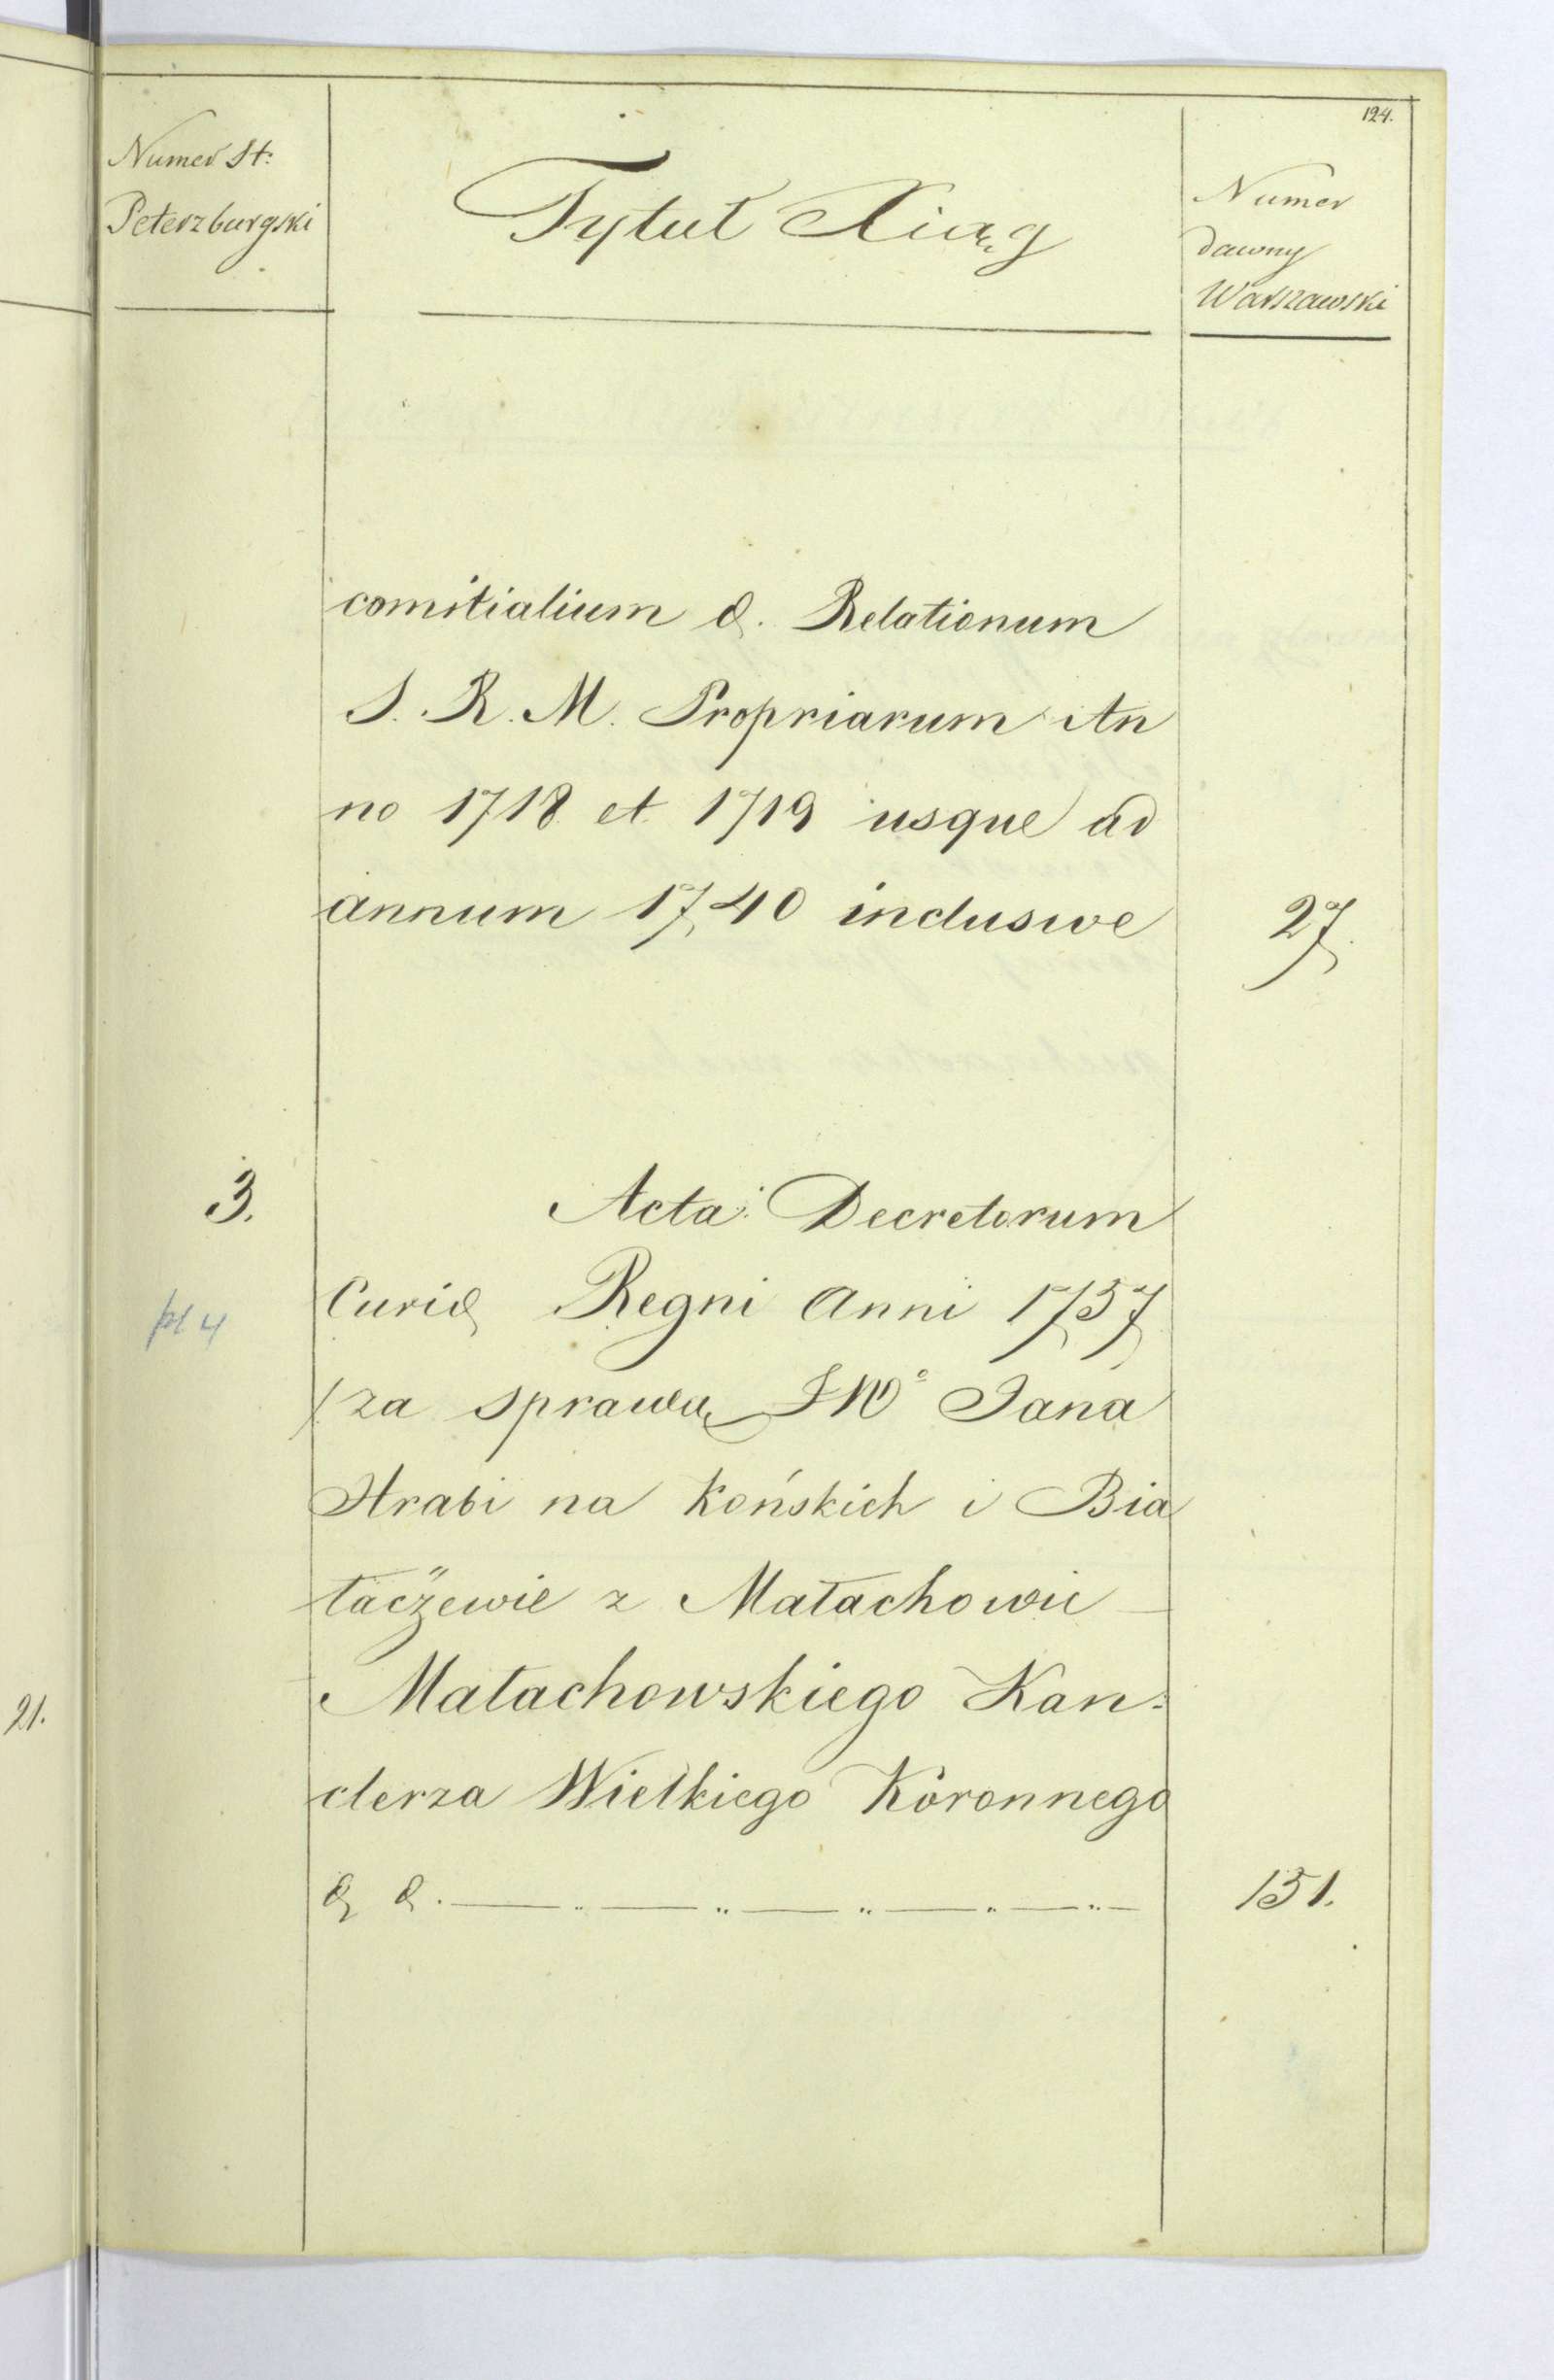 124.
Numer St:
Peterzburgski
Tytuł Xiąg
Numer
dawny
Warszawski
comitialium &. Relationum
S. R. M. Propriarum An
no 1718 et 1719 usque ad
annum 1740 inclusive
27.
3.
Acta Decretorum
Curiæ Regni Anni 1757
pl 4
/za sprawą JWo Jana
Hrabi na Końskich i Bia
łaczewie z Małachowic
Małachowskiego Kan:
clerza Wielkiego Koronnego
& &. — " — " — " — " — " —
151.
21.